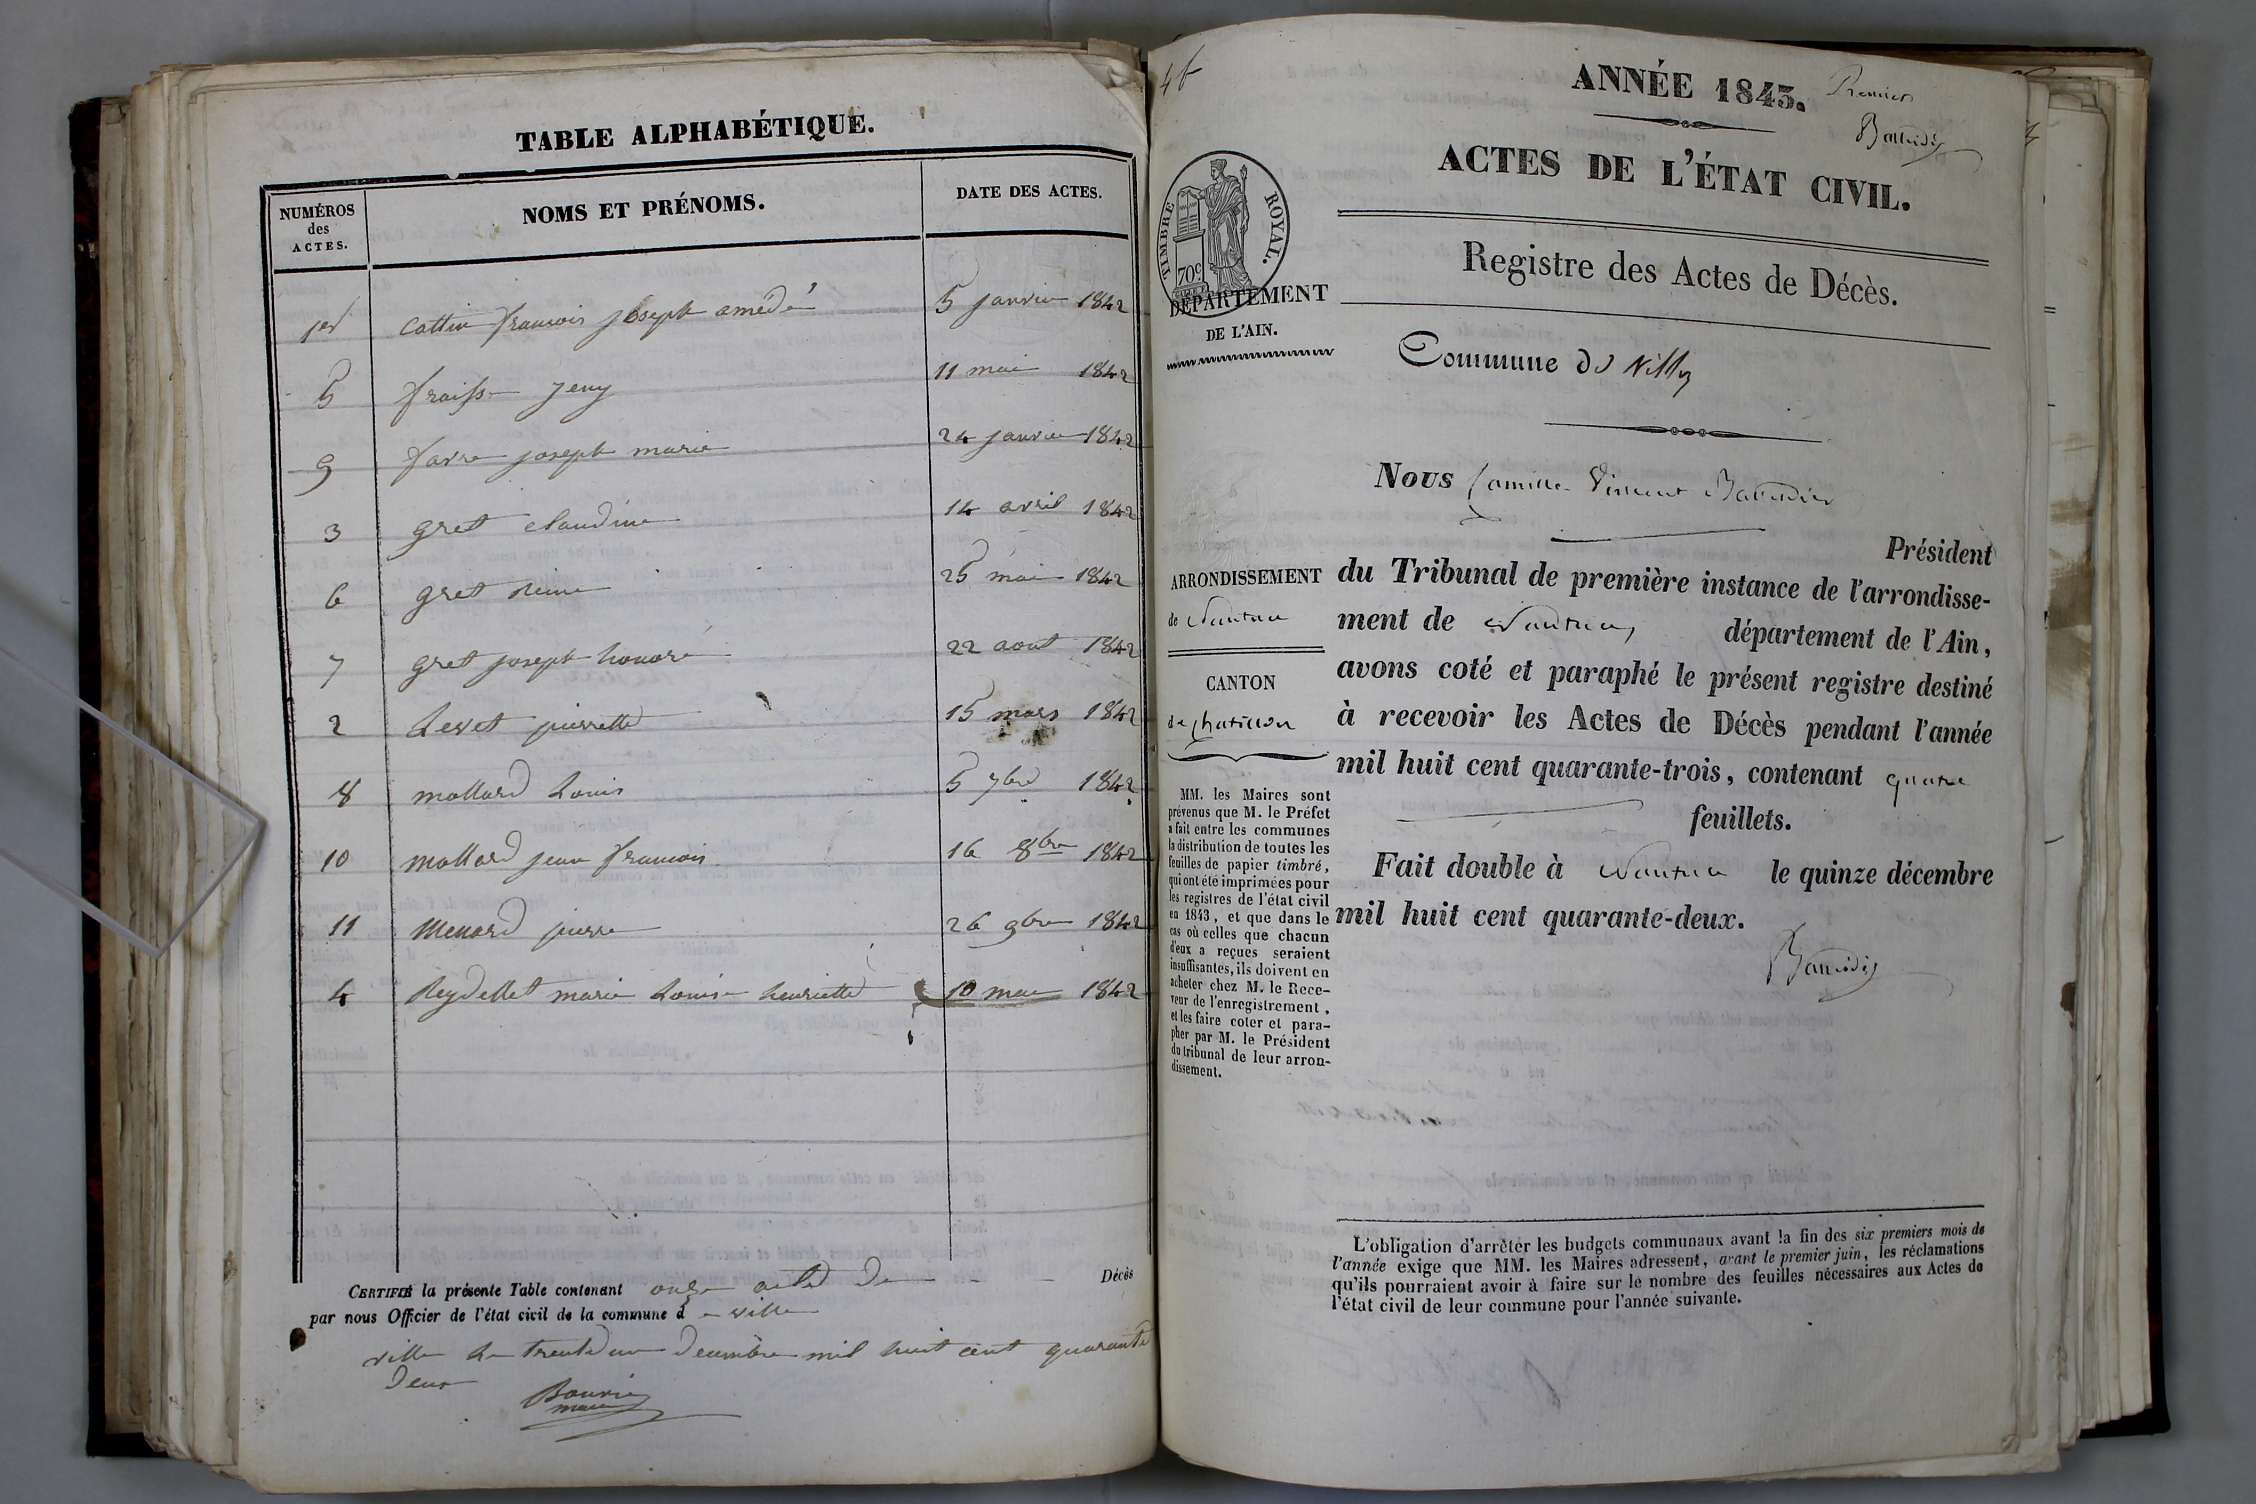 TABLE ALPHABÉTIQUE.
NUMÉROS des ACTES. NOMS ET PRÉNOMS. DATE DES ACTES.
1er Cottin françois joseph amédé 5 janvier 1842
5 fraisse jeny 11 mai 1842
9 favre joseph marie 24 janvier 1842
3 gret claudine 14 avril 1842
6 gret reine 25 mai 1842
7 gret joseph honoré 22 aout 1842
2 Levet pierrette 15 mars 1842
8 mollard Louis 5 7bre 1842
10 mollard jean françois 16 8bre 1842
11 Menard pierre 26 9bre 1842
4 Reydellet marie Louise henriette 10 mai 1842
CERTIFIÉ la présente Table contenant onze actes De Décès
par nous Officier de l'état civil de la commune d e ville
ville Le trente un Decembre mil huit cent quarante
Deux
maire
46
ANNÉE 1843. Premier
Baudier
ACTES DE L'ÉTAT CIVIL.
TIMBRE ROYAL.
70c
Registre des Actes de Décès.
DÉPARTEMENT
DE L'AIN.
Commune de Ville
Nous Camille Vincent Baudier
Président
du Tribunal de première instance de l'arrondisse-
ment de Nantua, département de l'Ain,
avons coté et paraphé le présent registre destiné
à recevoir les Actes de Décès pendant l'année
mil huit cent quarante-trois, contenant quatre
feuillets.
Fait double à Nantua le quinze décembre
mil huit cent quarante-deux.
Baudier
ARRONDISSEMENT
de Nantua
CANTON
de chatillon
MM. les Maires sont
prévenus que M. le Préfet
a fait entre les communes
la distribution de toutes les
feuilles de papier timbré,
qui ont été imprimées pour
les registres de l'état civil
en 1843, et que dans le
cas où celles que chacun
d'eux a reçues seraient
insuffisantes, ils doivent en
acheter chez M. le Rece-
veur de l'enregistrement,
et les faire coter et para-
pher par M. le Président
du tribunal de leur arron-
dissement.
L'obligation d'arrêter les budgets communaux avant la fin des six premiers mois de
l'année exige que MM. les Maires adressent, avant le premier juin, les réclamations
qu'ils pourraient avoir à faire sur le nombre des feuilles nécessaires aux Actes de
l'état civil de leur commune pour l'année suivante.